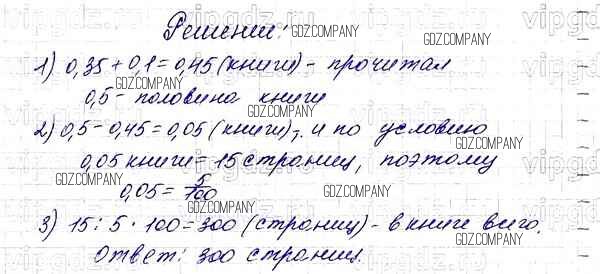 Решение:
1) 0,35 + 0,1 = 0,45 (книги) - прочитал
0,5 - половина книги
2) 0,5 - 0,45 = 0,05 (книги), и по условию
0,05 книги = 15 страниц, поэтому
0,05 = 5/100
3) 15 : 5 · 100 = 300 (страниц) - в книге всего.
Ответ: 300 страниц.
GDZ.COMPANY
GDZ.COMPANY
GDZ.COMPANY
GDZ.COMPANY
GDZ.COMPANY
GDZ.COMPANY
GDZ.COMPANY
GDZ.COMPANY
GDZ.COMPANY
GDZ.COMPANY
vipgdz.ru